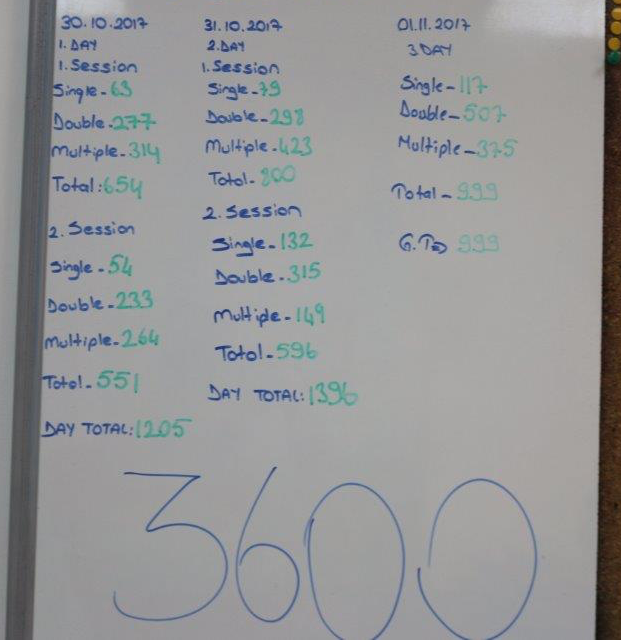 30.10.2017
1. DAY
1. Session
Single - 63
Double - 277
Multiple - 314
Total: 654
2. Session
Single - 54
Double - 233
Multiple - 264
Total - 551
DAY TOTAL: 1205
31.10.2017
2. DAY
1. Session
Single - 79
Double - 298
Multiple - 423
Total - 800
2. Session
Single - 132
Double - 315
Multiple - 149
Total - 596
DAY TOTAL: 1396
01.11.2017
3 DAY
Single - 117
Double - 507
Multiple - 375
Total - 999
999
3600